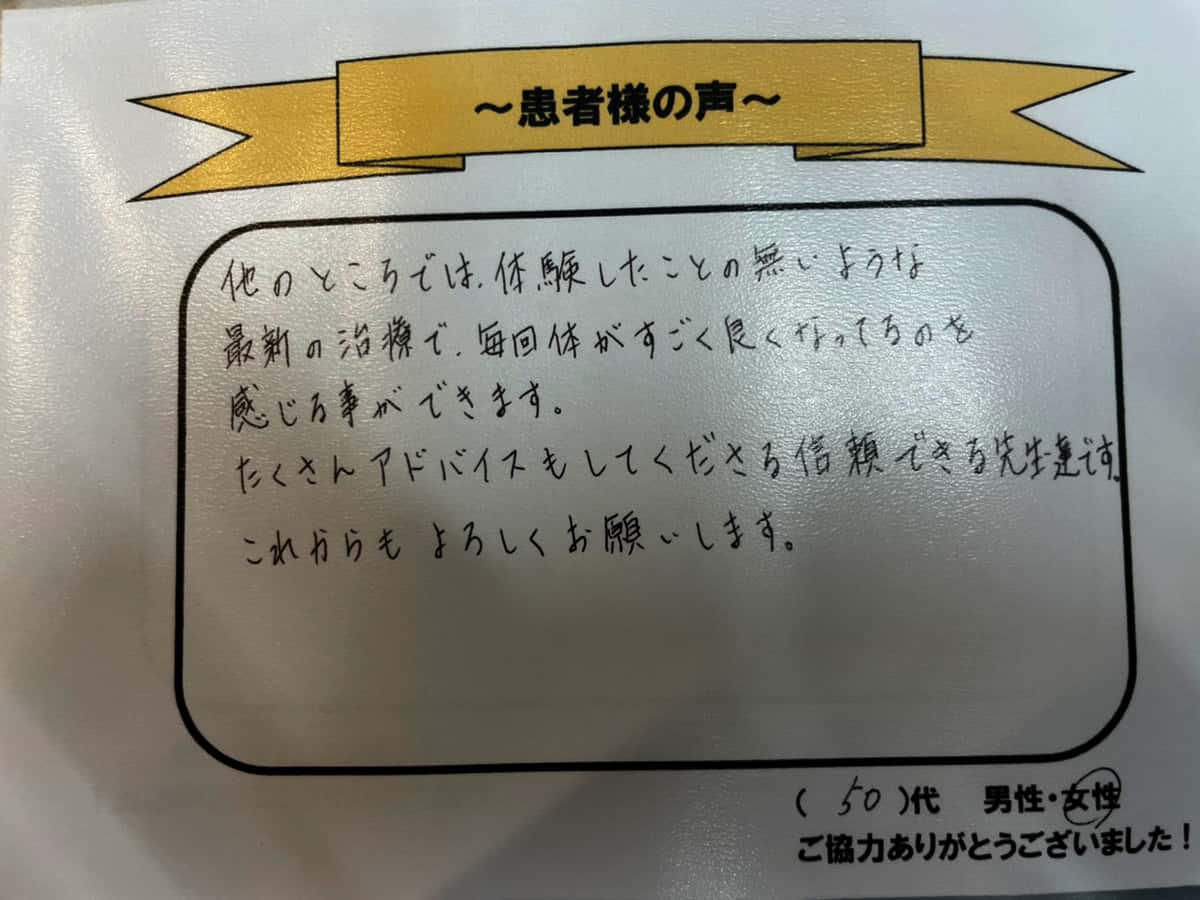 ～患者様の声～
他のところでは、体験したことの無いような
最新の治療で、毎回体がすごく良くなってるのを
感じる事ができます。
たくさんアドバイスもしてくださる信頼できる先生達です。
これからもよろしくお願いします。
( 50 )代 男性・女性
ご協力ありがとうございました！